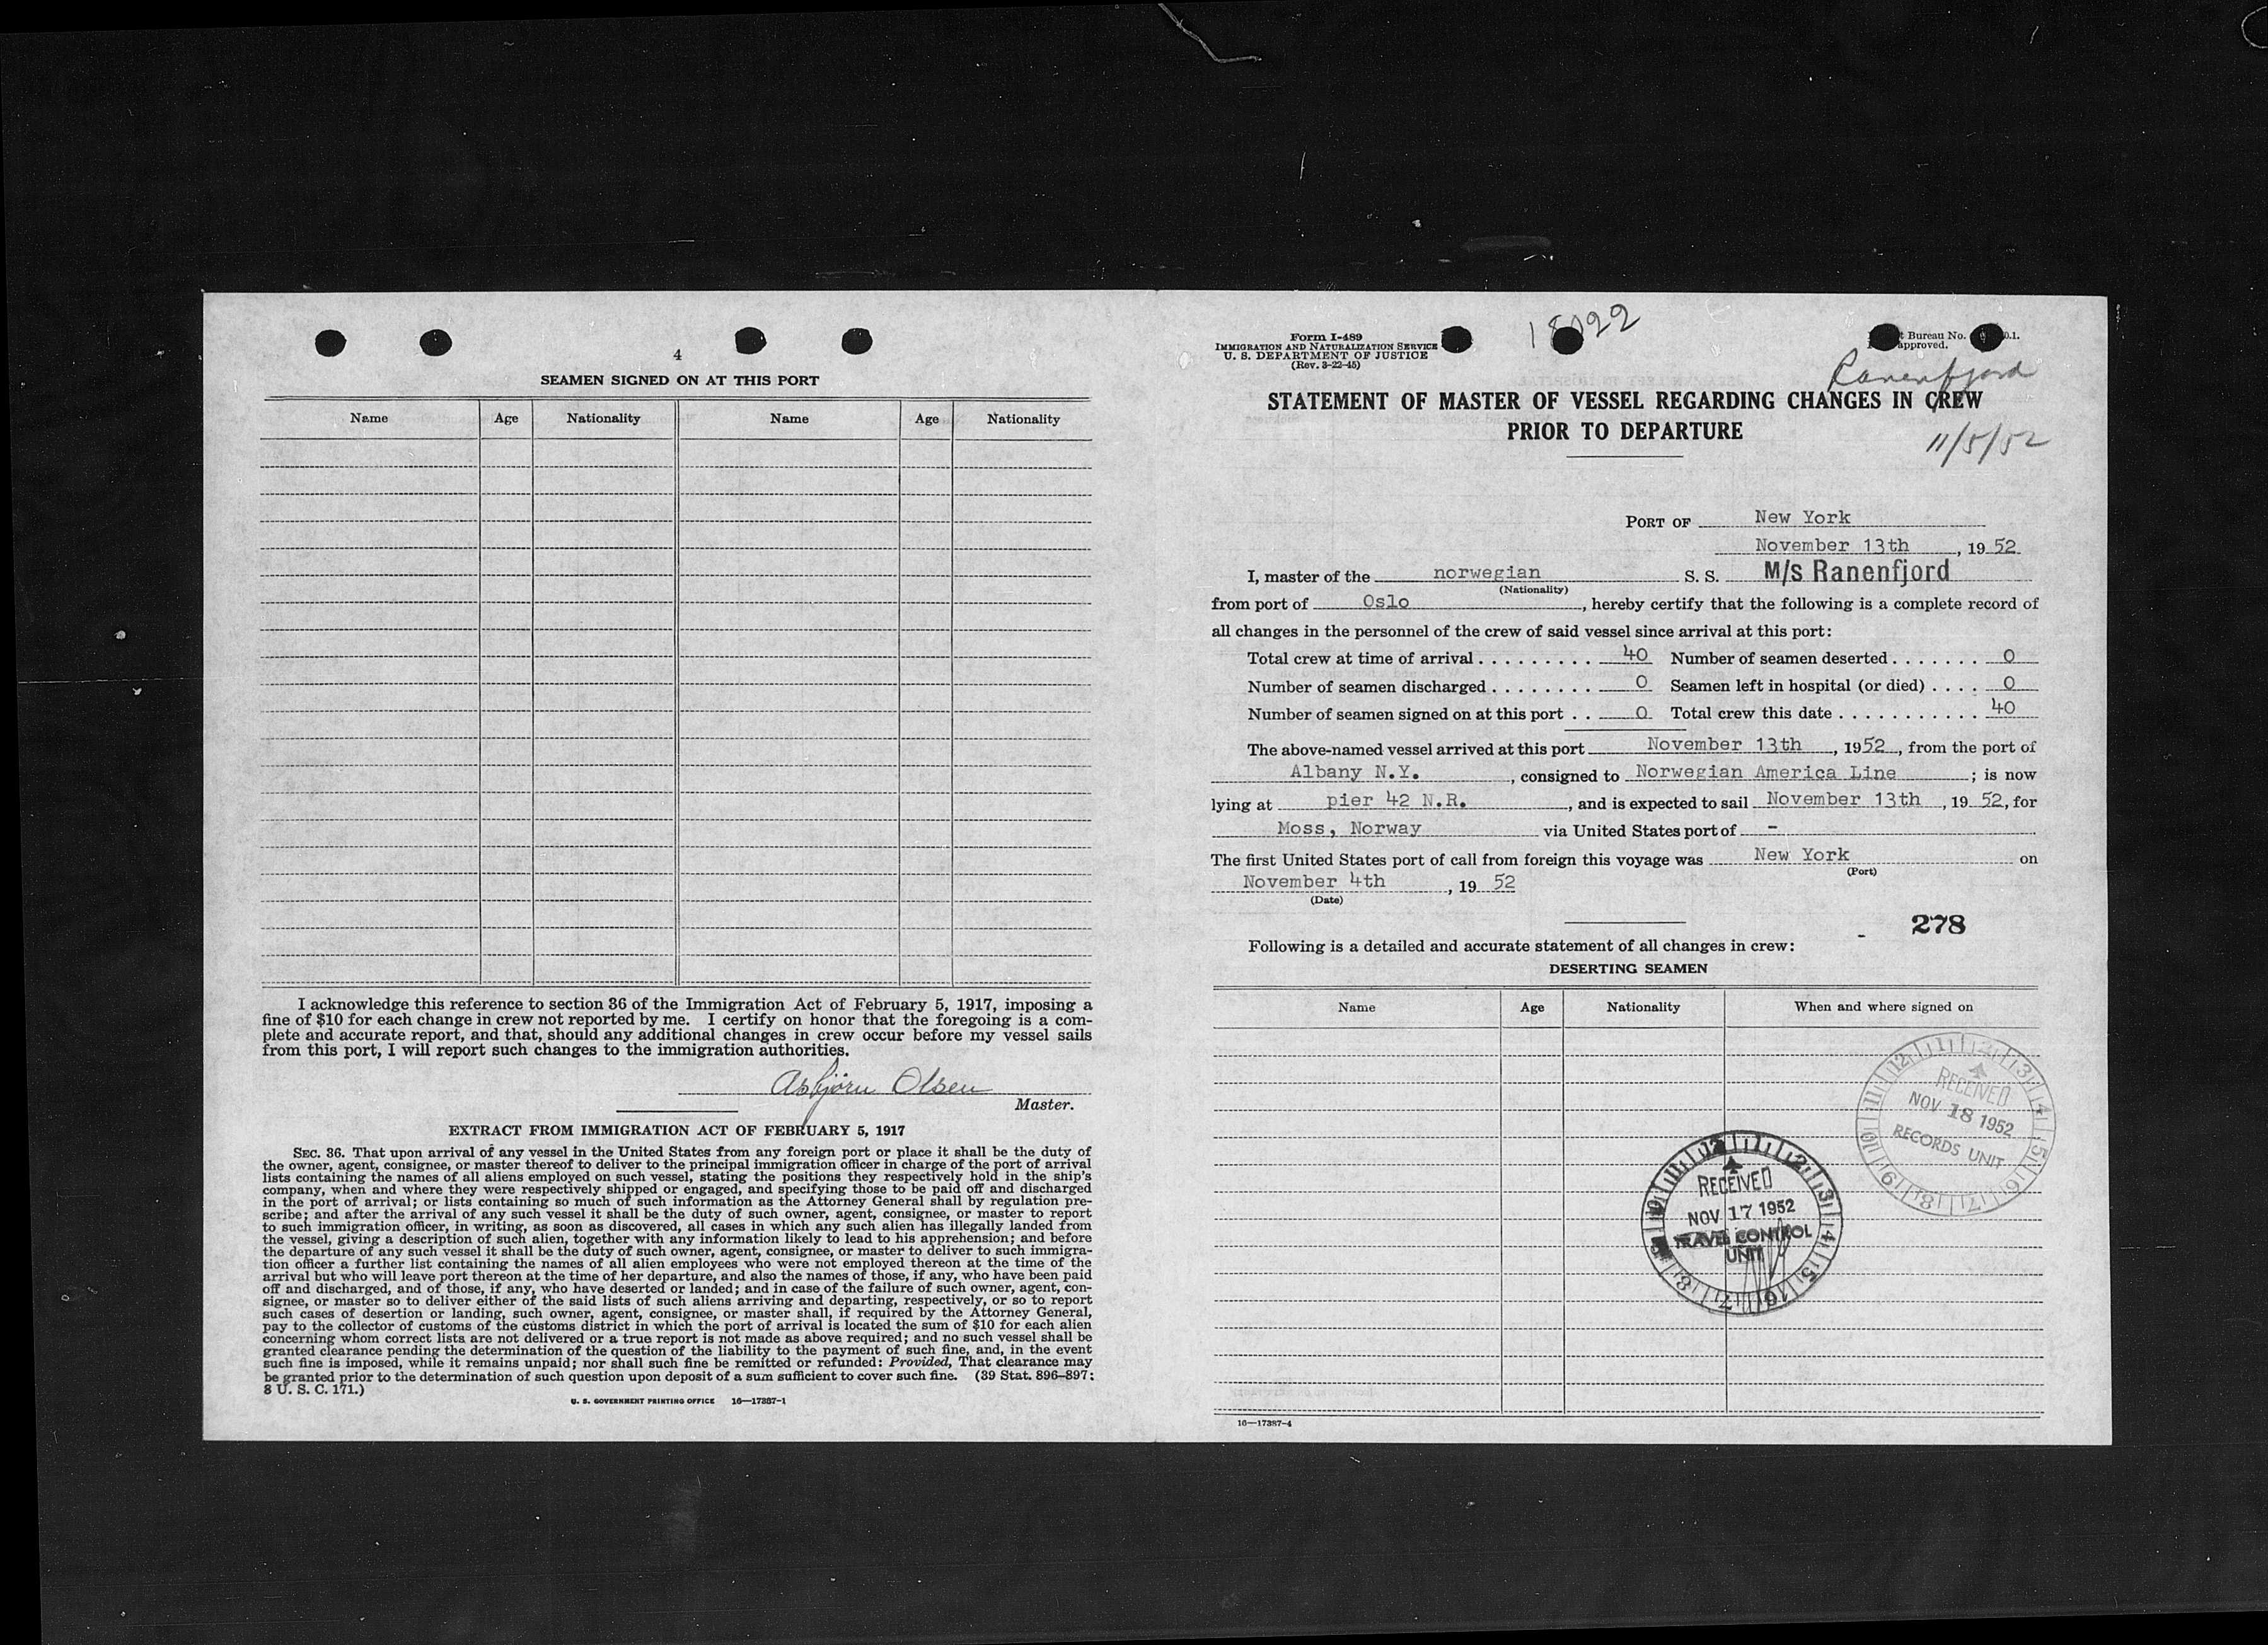 4
SEAMEN SIGNED ON AT THIS PORT
Name Age Nationality Name Age Nationality
I acknowledge this reference to section 36 of the Immigration Act of February 5, 1917, imposing a
fine of $10 for each change in crew not reported by me. I certify on honor that the foregoing is a com-
plete and accurate report, and that, should any additional changes in crew occur before my vessel sails
from this port, I will report such changes to the immigration authorities.
Asbjörn Olsen
Master.
EXTRACT FROM IMMIGRATION ACT OF FEBRUARY 5, 1917
SEC. 36. That upon arrival of any vessel in the United States from any foreign port or place it shall be the duty of
the owner, agent, consignee, or master thereof to deliver to the principal immigration officer in charge of the port of arrival
lists containing the names of all aliens employed on such vessel, stating the positions they respectively hold in the ship's
company, when and where they were respectively shipped or engaged, and specifying those to be paid off and discharged
in the port of arrival; or lists containing so much of such information as the Attorney General shall by regulation pre-
scribe; and after the arrival of any such vessel it shall be the duty of such owner, agent, consignee, or master to report
to such immigration officer, in writing, as soon as discovered, all cases in which any such alien has illegally landed from
the vessel, giving a description of such alien, together with any information likely to lead to his apprehension; and before
the departure of any such vessel it shall be the duty of such owner, agent, consignee, or master to deliver to such immigra-
tion officer a further list containing the names of all alien employees who were not employed thereon at the time of the
arrival but who will leave port thereon at the time of her departure, and also the names of those, if any, who have been paid
off and discharged, and of those, if any, who have deserted or landed; and in case of the failure of such owner, agent, con-
signee, or master so to deliver either of the said lists of such aliens arriving and departing, respectively, or so to report
such cases of desertion or landing, such owner, agent, consignee, or master shall, if required by the Attorney General,
pay to the collector of customs of the customs district in which the port of arrival is located the sum of $10 for each alien
concerning whom correct lists are not delivered or a true report is not made as above required; and no such vessel shall be
granted clearance pending the determination of the question of the liability to the payment of such fine, and, in the event
such fine is imposed, while it remains unpaid; nor shall such fine be remitted or refunded: Provided, That clearance may
be granted prior to the determination of such question upon deposit of a sum sufficient to cover such fine. (39 Stat. 896–897;
8 U. S. C. 171.)
U. S. GOVERNMENT PRINTING OFFICE 16—17387-1
Form I-489
IMMIGRATION AND NATURALIZATION SERVICE
U. S. DEPARTMENT OF JUSTICE
(Rev. 3-22-45)
Bureau No.
approved.
Ranenfjord
STATEMENT OF MASTER OF VESSEL REGARDING CHANGES IN CREW
PRIOR TO DEPARTURE
11/5/52
PORT OF New York
November 13th, 1952
I, master of the norwegian S. S. M/S Ranenfjord
(Nationality)
from port of Oslo, hereby certify that the following is a complete record of
all changes in the personnel of the crew of said vessel since arrival at this port:
Total crew at time of arrival . . . . . . . . . 40 Number of seamen deserted . . . . . . . 0
Number of seamen discharged . . . . . . . . 0 Seamen left in hospital (or died) . . . . 0
Number of seamen signed on at this port . . 0 Total crew this date . . . . . . . . . . . 40
The above-named vessel arrived at this port November 13th, 1952, from the port of
Albany N.Y., consigned to Norwegian America Line; is now
lying at pier 42 N.R., and is expected to sail November 13th, 1952, for
Moss, Norway via United States port of -
The first United States port of call from foreign this voyage was New York on
(Port)
November 4th, 1952
(Date)
278
Following is a detailed and accurate statement of all changes in crew:
DESERTING SEAMEN
Name Age Nationality When and where signed on
12 1 2 3 4 5 6 7 8 9 10 11
RECEIVED
NOV 18 1952
RECORDS UNIT
12 1 2 3 4 5 6 7 8 9 10 11
RECEIVED
NOV 17 1952
TRAVEL CONTROL
UNIT
16—17387-4